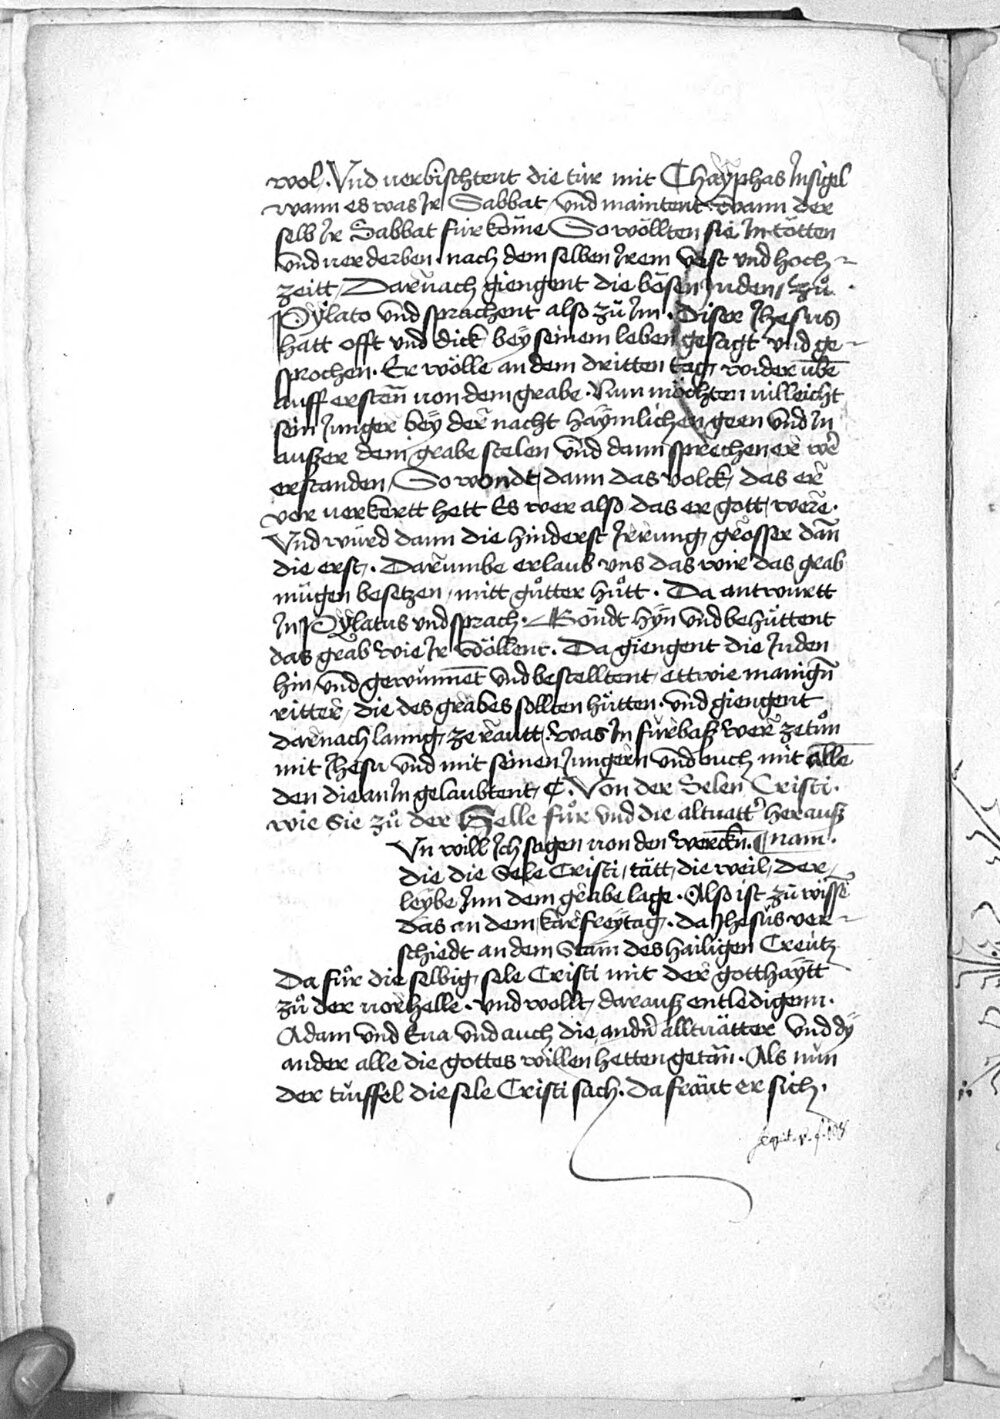 wol. Vnd uerbischtent die tür mit Chaÿphas Insigel
wann es was Ir Sabbat, vnd maintent. wann der
selb Ir Sabbat für köme So wöllten sie In tötten
vnd uerderben nach dem selben Irem vest vnd hoch-
zeitt, Darnach giengent die bösen Juden, zů
Pÿlato vnd sprachent also zů Im. Diser Jhesus
hatt offt vnd dick beÿ seinem leben gesagt vnd ge-
sprochen. Er wölle an dem dritten tag, wider vbē
auff erstēn von dem grabe. Nun möchten uilleicht
sein Junger beÿ der nacht haÿmlichen gern vnd In
außer dem grabe stelen vnd dann sprechen er wer
erstanden, So wondt, dann das volck, das er
vor uerkertt hett Es wer also das er gott, were.
Vnd würd dann die hinderst Irrung, grösser dan̄
die erst,. Darumbe erlaub vns das wir das grab
mügen besetzen, mitt gůtter hůtt. Da antwurtt
In Pÿlatus vnd sprach. Gondt hÿn vnd behůttent
das grab wie Ir wöllent. Da giengent die Juden
hin, vnd gewunnet vnd bestelltent, ettwie manigñ
ritter, die des grabes sollten hůtten. vnd giengent
darnach lanng, ze rautt, was In fürbaß wer zetůn
mit Jhesu vnd mit seinen Jungern vnd auch mit allē
den die an In gelaubtent, C. Von der Selen Cristi.
wie sie zů der Helle fůr vnd die altuatt' herauß
Vn will Ich sagen von den werckñ. nam
die die Sele Cristi, tätt, die weil, der
leÿbe Inn dem grabe lage. Also ist zů wisse
das an dem karfreÿtag. da Jhesus ver-
schiedt an dem Stam des hailigen Creutz
Da fůr die selbig, sele Cristi mit der gotthaÿtt
zů der vorhelle. vnd wollt, darauß entledigenn.
Adam vnd Eua vnd auch die, andñ alltuätter vnd dÿ
ander alle die gottes willen hetten getān. Als nun
der tüffel die sele Cristi sach. da fräut er sich.